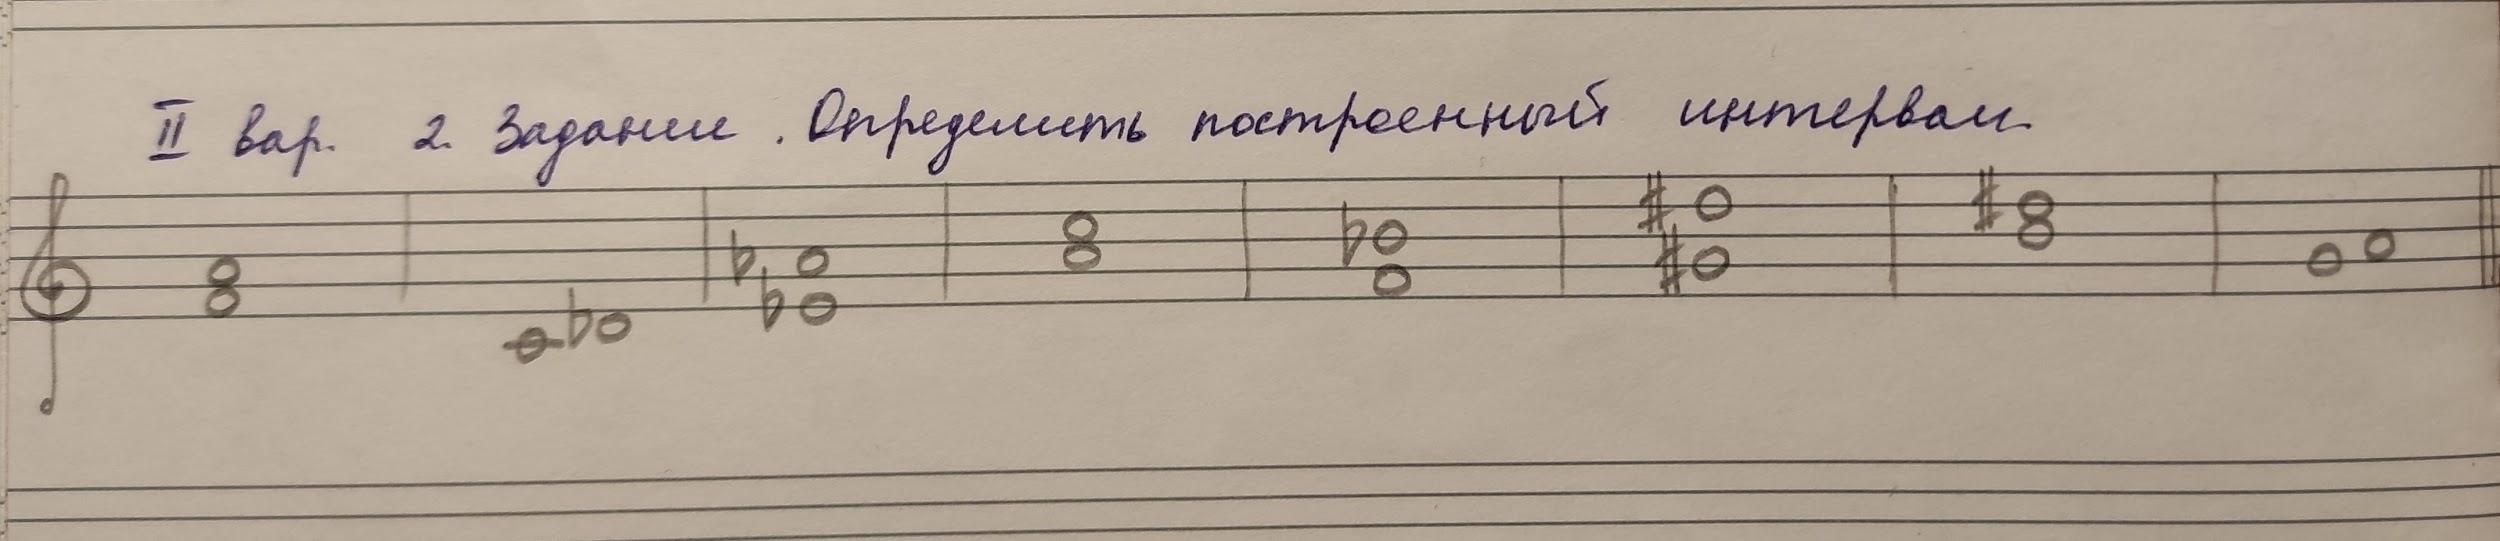 II вар. 2. Задание. Определить построенный интервал.